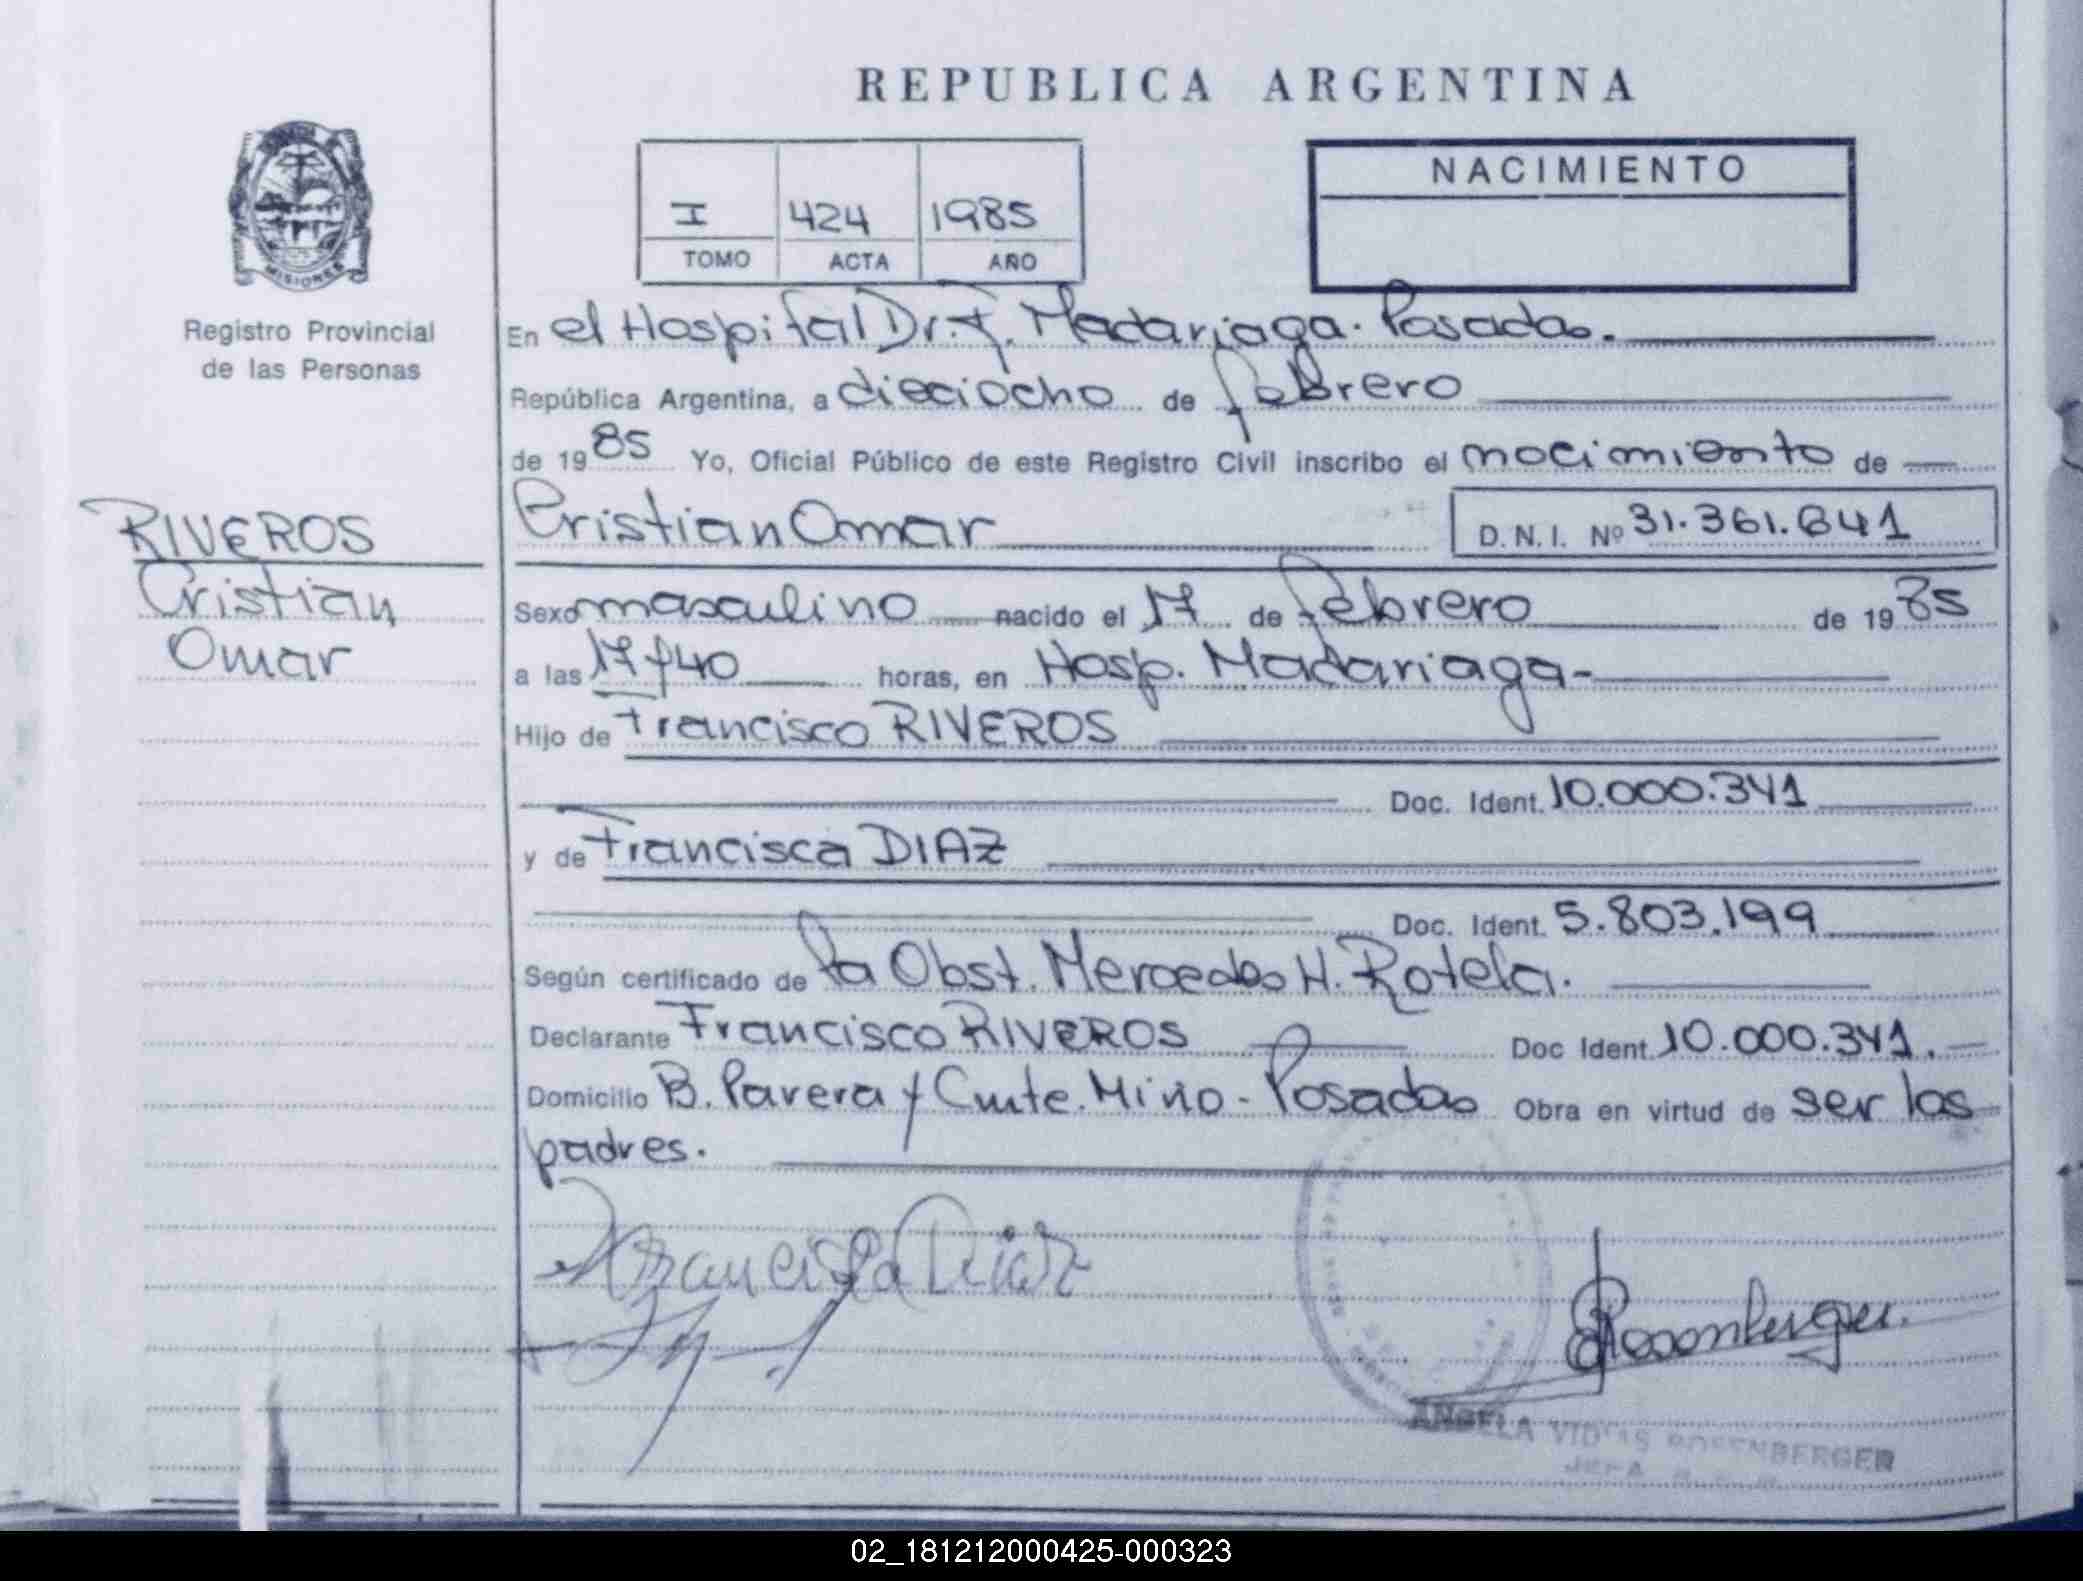 REPUBLICA ARGENTINA
MISIONES
Registro Provincial
de las Personas
I 424 1985
TOMO ACTA AÑO
NACIMIENTO
En el Hospital Dr. F. Madariaga. Posadas.
República Argentina, a dieciocho de febrero
de 1985 Yo, Oficial Público de este Registro Civil inscribo el nacimiento de
RIVEROS
Cristian
Omar
Cristian Omar D.N.I. Nº 31.361.641
Sexo masculino nacido el 17 de febrero de 1985
a las 17 y 40 horas, en Hosp. Madariaga-
Hijo de Francisco RIVEROS
Doc. Ident. 10.000.341
y de Francisca DIAZ
Doc. Ident. 5.803.199
Según certificado de la Obst. Mercedes H. Rotela.
Declarante Francisco RIVEROS Doc Ident. 10.000.341.
Domicilio B. Pavera y Cmte. Miño - Posadas Obra en virtud de ser los
padres.
Francisca Diaz
Rosenberger.
ANGELA ROSENBERGER
JEFA
02_181212000425-000323